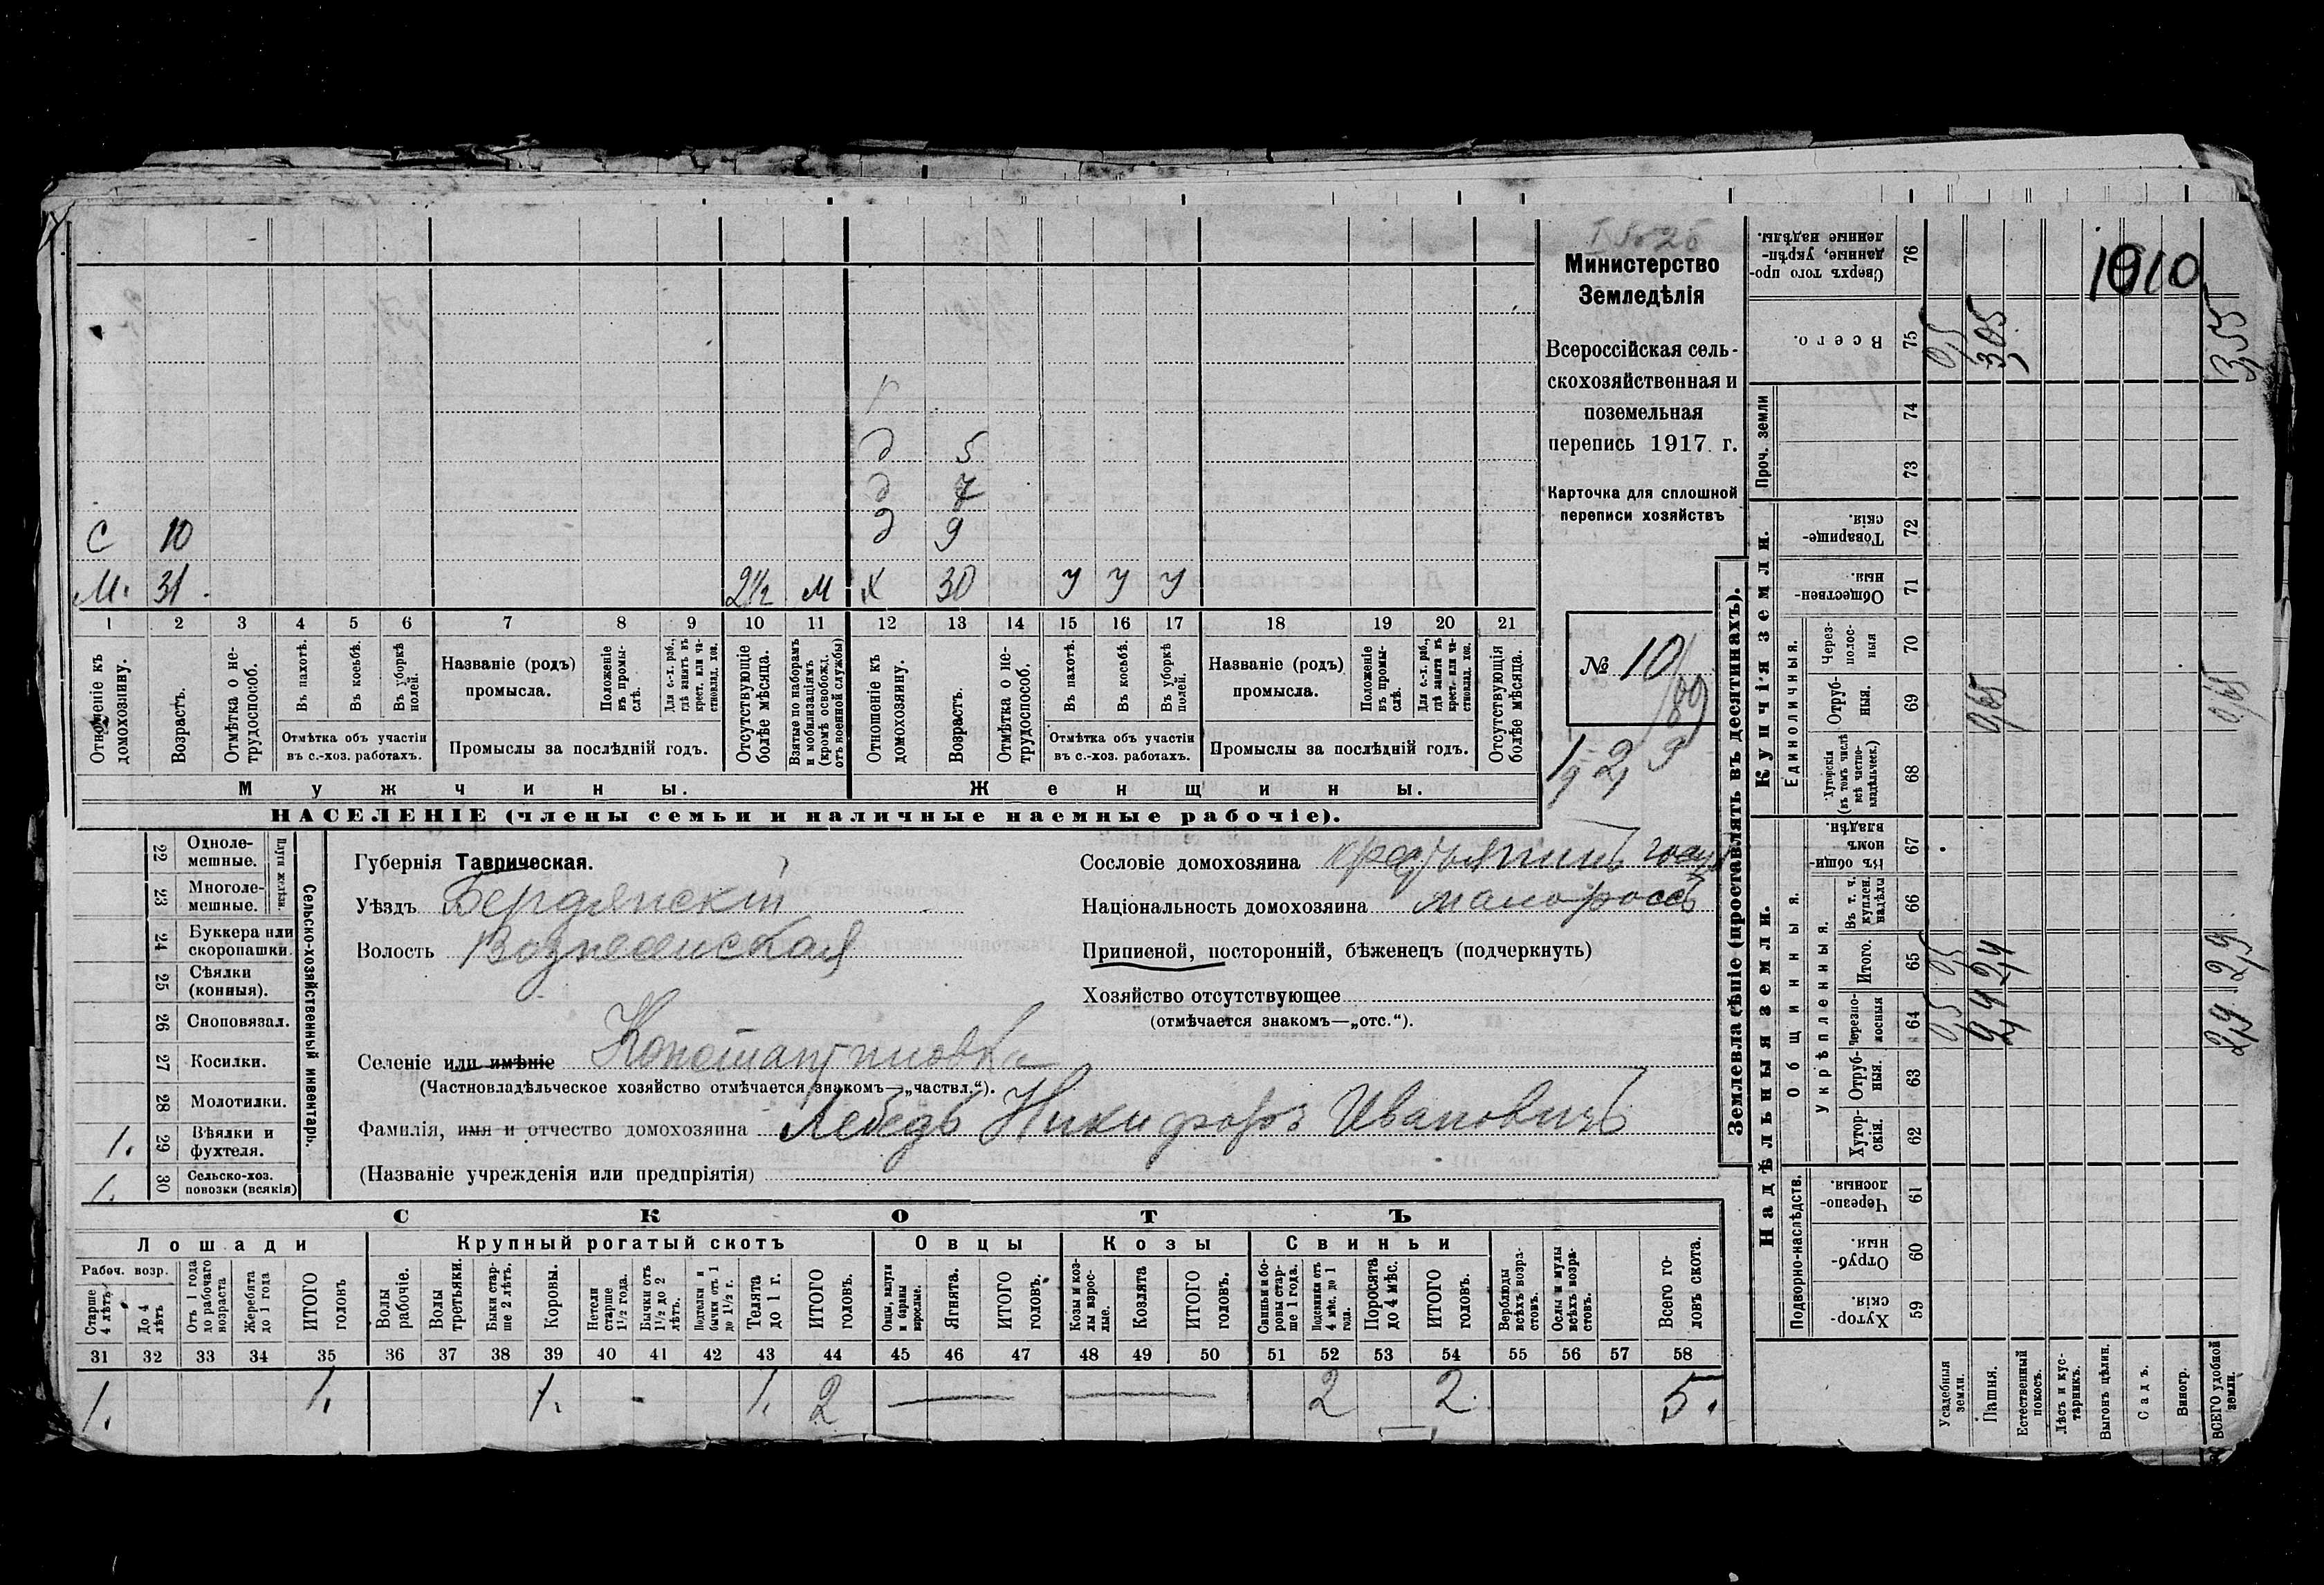 Министерство
Земледѣлія
Всероссійская сель-
скохозяйственная и
поземельная
перепись 1917 г.
Карточка для сплошной
переписи хозяйствъ
№ 10
д 5
д 7
С 10 д 9
М. 31. 2½ М Х 30 у у у
1 2 3 4 5 6 7 8 9 10 11 12 13 14 15 16 17 18 19 20 21
Отношеніе къ домохозяину.
Возрастъ.
Отмѣтка о не-трудоспособ.
Въ пахотѣ.
Въ косьбѣ.
Въ уборкѣ полей.
Отмѣтка объ участіи въ с.-хоз. работахъ.
Названіе (родъ) промысла.
Положеніе въ промы-слѣ.
Для с.-х. раб., гдѣ занятъ въ крест. или ча-стновлад. хоз.
Промыслы за послѣдній годъ.
Отсутствующіе болѣе мѣсяца.
Взятые по наборамъ и мобилизаціямъ (кромѣ освобожд. отъ военной службы)
Отношеніе къ домохозяину.
Возрастъ.
Отмѣтка о не-трудоспособ.
Въ пахотѣ.
Въ косьбѣ.
Въ уборкѣ полей.
Отмѣтка объ участіи въ с.-хоз. работахъ.
Названіе (родъ) промысла.
Положеніе въ промы-слѣ.
Для с.-х. раб., гдѣ занята въ крест. или ча-стновлад. хоз.
Промыслы за послѣдній годъ.
Отсутствующія болѣе мѣсяца.
Мужчины. Женщины.
НАСЕЛЕНІЕ (члены семьи и наличные наемные рабочіе).
Сельско-хозяйственный инвентарь.
Плуги желѣзн.
22 Одноле-мешные.
23 Многоле-мешные.
24 Буккера или скоропашки.
25 Сѣялки (конныя).
26 Сноповязал.
27 Косилки.
28 Молотилки.
1. 29 Вѣялки и фухтеля.
1. 30 Сельско-хоз. повозки (всякія)
Губернія Таврическая.
Уѣздъ Бердянскій
Волость Вознесенская
Селеніе или имѣніе Константиновка
(Частновладѣльческое хозяйство отмѣчается знакомъ—„частвл.“).
Фамилія, имя и отчество домохозяина Лебедь Никифоръ Ивановичъ
(Названіе учрежденія или предпріятія)
Сословіе домохозяина крестьянинъ
Національность домохозяина малороссъ
Приписной, посторонній, бѣженецъ (подчеркнуть)
Хозяйство отсутствующее
(отмѣчается знакомъ—„отс.“).
СКОТЪ
Лошади Крупный рогатый скотъ Овцы Козы Свиньи
Рабоч. возр.
Старше 4 лѣтъ
До 4 лѣтъ
Отъ 1 года до рабочаго возраста
Жеребята до 1 года
ИТОГО головъ
Волы рабочіе.
Волы третьяки.
Быки стар-ше 2 лѣтъ.
Коровы.
Нетели старше 1½ года.
Бычки отъ 1½ до 2 лѣтъ.
Подтелки и бычки отъ 1 до 1½ г.
Телята до 1 г.
ИТОГО головъ.
Овцы, валухи и бараны взрослые.
Ягнята.
ИТОГО головъ.
Козы и коз-лы взрос-лые.
Козлята
ИТОГО головъ.
Свиньи и бо-ровы стар-ше 1 года.
Подсвинки отъ 4 мѣс. до 1 года.
Поросята до 4 мѣс.
ИТОГО головъ.
Верблюды всѣхъ возра-стовъ.
Ослы и мулы всѣхъ возра-стовъ.
Всего го-ловъ скота.
31 32 33 34 35 36 37 38 39 40 41 42 43 44 45 46 47 48 49 50 51 52 53 54 55 56 57 58
1. 1. 1. 1. 2 — — 2 2 5.
Землевладѣніе (проставлять въ десятинахъ).
Надѣльныя земли. Купчія земли. Проч. земли
Подворно-наслѣдств.
Общинныя.
Укрѣпленныя.
Единоличныя.
59 Хутор-скія
60 Отруб-ныя.
61 Черезпо-лосныя.
62 Хутор-скія.
63 Отруб-ныя.
64 Черезпо-лосныя 0,5 2,4 2,9
65 Итого. 0,5 2,4 2,9
66 Въ т. ч. куплен. надѣлы
67 Въ общин-номъ владѣн.
68 Хуторскія (въ томъ числѣ всѣ частно-владѣльческ.)
69 Отруб-ныя. 0,65 0,65
70 Через-полос-ныя
71 Обществен-ныя.
72 Товарище-скія.
73
74
75 Всего. 0,5 3,05 3,55
76 Сверхъ того про-данные, укрѣп-ленные надѣлы.
Усадебныя земли.
Пашня.
Естественный покосъ.
Лѣсъ и кус-тарникъ.
Выгонъ цѣлин.
Садъ.
Виногр.
ВСЕГО удобной земли.
1010